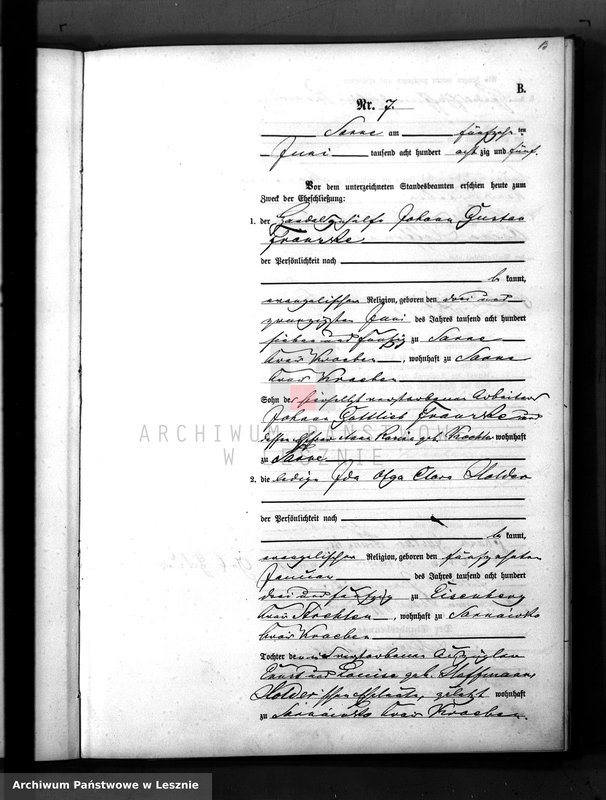 B.
Nr. 7.
Sarne am fünfzehn ten
Juni tausend acht hundert acht zig und fünf.
Vor dem unterzeichneten Standesbeamten erschien heute zum
Zweck der Eheschließung:
1. der Handelsgehülfe Johann Gustav
Franzke
der Persönlichkeit nach
be kannt,
evangelischer Religion, geboren den drei und
zwanzigsten Juni des Jahres tausend acht hundert
sieben und fünfzig zu Sarne
Kreis Kroeben, wohnhaft zu Sarne
Kreis Kroeben
Sohn des hierselbst verstorbenen Arbeiters
Johann Gottlieb Franzke und
dessen Ehefrau geb. wohnhaft
zu Sarne
ARCHIWUM PAŃSTWOWE
W LESZNIE
2. die ledige Ida Olga Clara Holder
der Persönlichkeit nach
be kannt,
evangelischer Religion, geboren den fünfzehnten
Januar des Jahres tausend acht hundert
drei und fünfzig zu Eisenberg
Kreis, wohnhaft zu Sarnówko
Kreis Kroeben
Tochter der verstorbenen
Ernst und Louise geb. Hoffmann
Holder'schen Eheleute, zuletzt wohnhaft
zu Sarnówko Kreis Kroeben.
Archiwum Państwowe w Lesznie